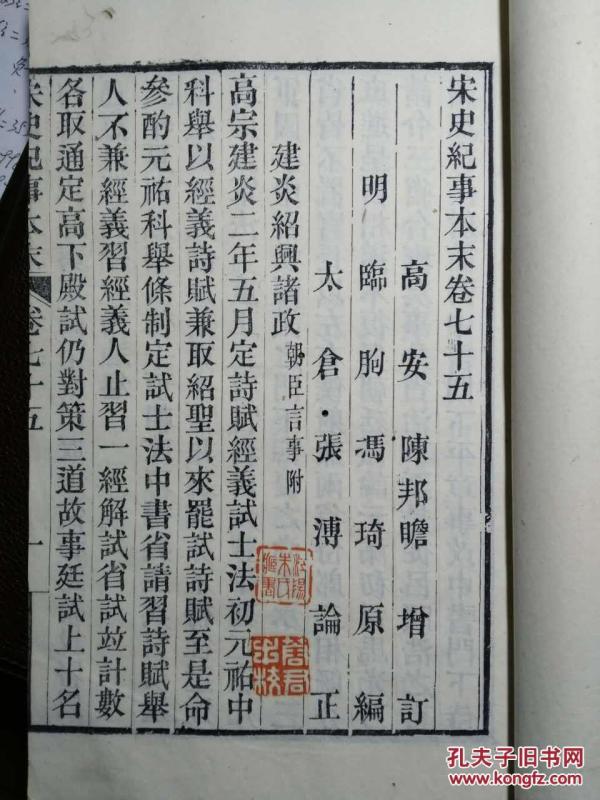 宋史紀事本末卷七十五
高安陳邦瞻增訂
明臨朐馮琦原編
太倉張溥論正
建炎紹興諸政朝臣言事附
高宗建炎二年五月定詩賦經義試士法初元祐中
科舉以經義詩賦兼取紹聖以來罷試詩賦至是命
參酌元祐科舉條制定試士法中書省請習詩賦舉
人不兼經義習經義人止習一經解試省試竝計數
各取通定高下殿試仍對策三道故事廷試上十名
宋史紀事本末 卷七十五 一
孔夫子旧书网
www.kongfz.com